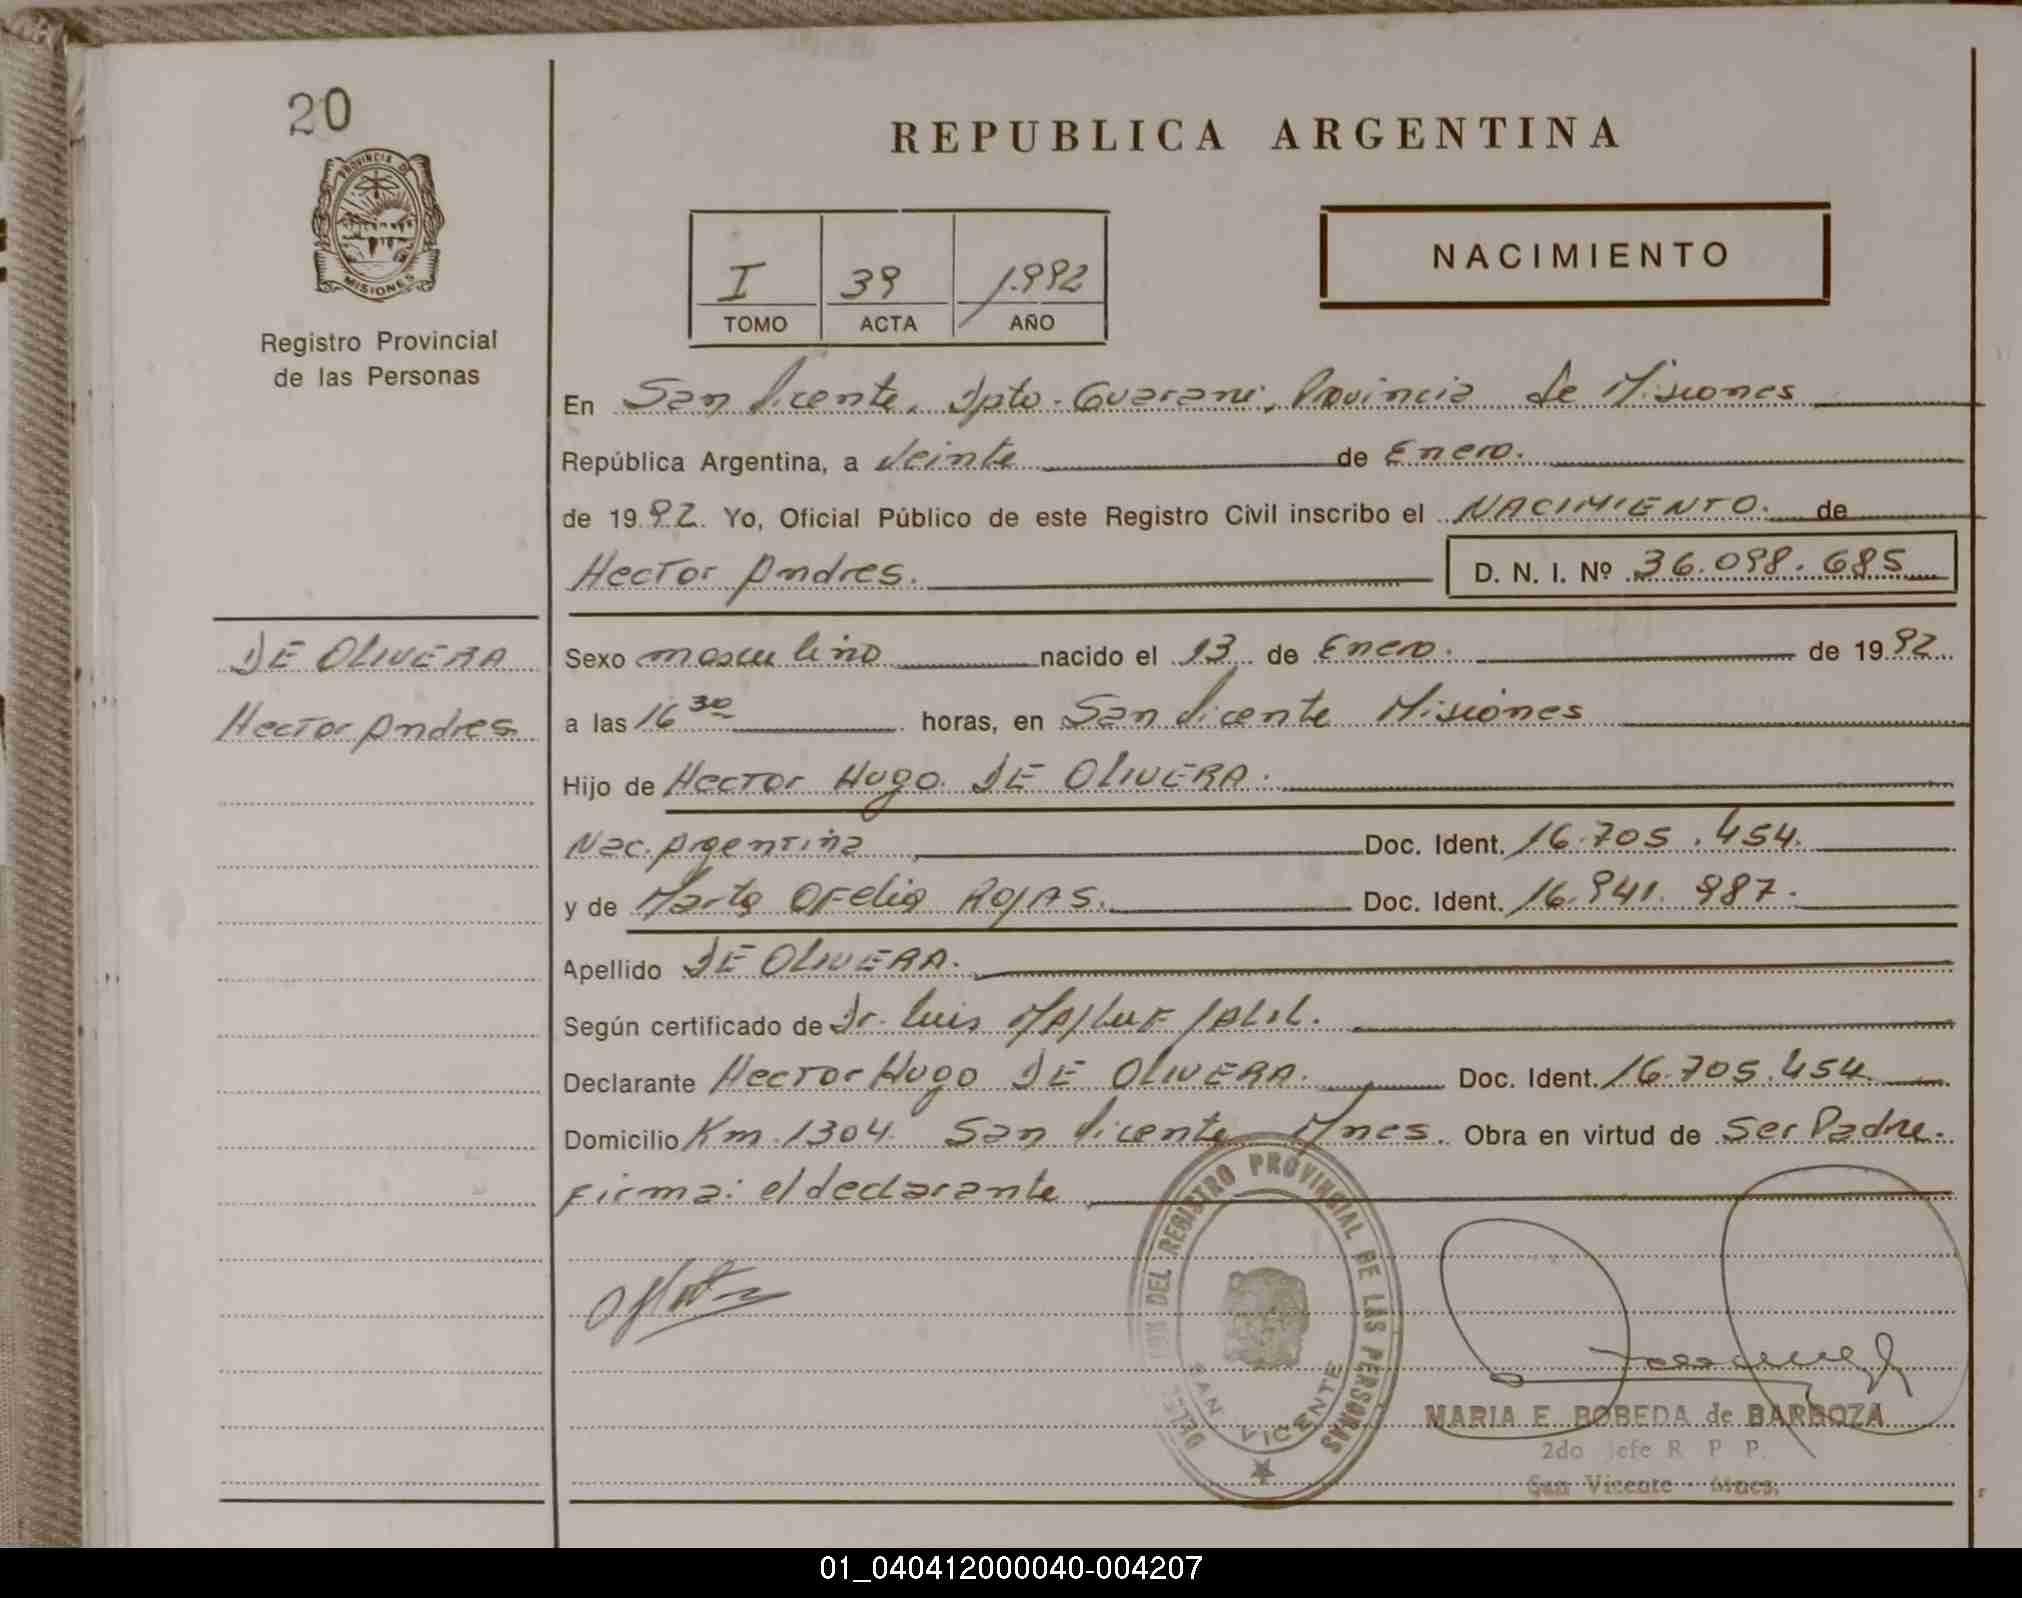 20
PROVINCIA DE
MISIONES
Registro Provincial
de las Personas
REPUBLICA ARGENTINA
I 39 1.992
TOMO ACTA AÑO
NACIMIENTO
En San Vicente, Dpto. Guarani, Provincia de Misiones
República Argentina, a Veinte de Enero.
de 1992. Yo, Oficial Público de este Registro Civil inscribo el NACIMIENTO. de
Hector Andres. D. N. I. Nº 36.098.685
DE OLIVERA
Hector Andres
Sexo masculino nacido el 13 de Enero. de 1992
a las 16 30 horas, en San Vicente Misiones
Hijo de Hector Hugo DE OLIVERA.
Nac. Argentina Doc. Ident. 16.705.454.
y de Marta Ofelia ROJAS. Doc. Ident. 16.941.987.
Apellido DE OLIVERA.
Según certificado de Dr. Luis MAJLUF JALIL.
Declarante Hector Hugo DE OLIVERA. Doc. Ident. 16.705.454
Domicilio Km. 1304 San Vicente Mnes. Obra en virtud de Ser Padre.
Firma: el declarante
DEL REGISTRO PROVINCIAL DE LAS PERSONAS
SAN VICENTE
MARIA E. BOBEDA de BARBOZA
2do Jefe R. P. P.
San Vicente - Mnes.
01_040412000040-004207